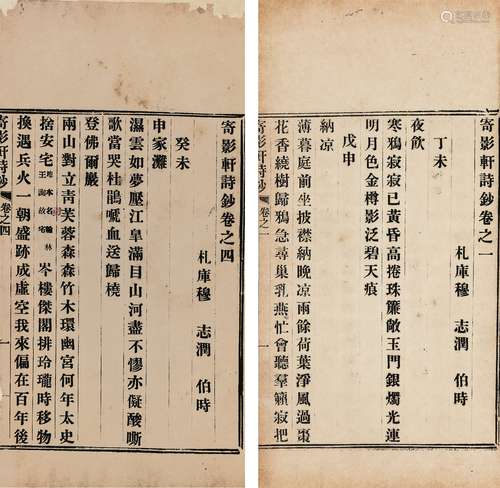 寄影軒詩鈔卷之一
札庫穆　志潤　伯時
丁未
夜飲
寒鴉寂寂已黃昏高捲珠簾敞玉門銀燭光連
明月色金樽影泛碧天痕
戊申
納凉
薄暮庭前坐披襟納晚凉雨餘荷葉淨風過棗
花香繞樹歸鴉急尋巢乳燕忙會聽羣籟寂把
寄影軒詩鈔　卷之一　一
寄影軒詩鈔卷之四
札庫穆　志潤　伯時
癸未
申家灘
濕雲如夢壓江皐滿目山河盡不憀亦儗酸嘶
歌當哭杜鵑嘔血送歸橈
登佛爾巖
兩山對立靑芙蓉森森竹木環幽宮何年太史
捨安宅地本名翰林王洵故宅岑樓傑閣排玲瓏時移物
換遇兵火一朝盛跡成虛空我來偏在百年後
寄影軒詩鈔　卷之四　一